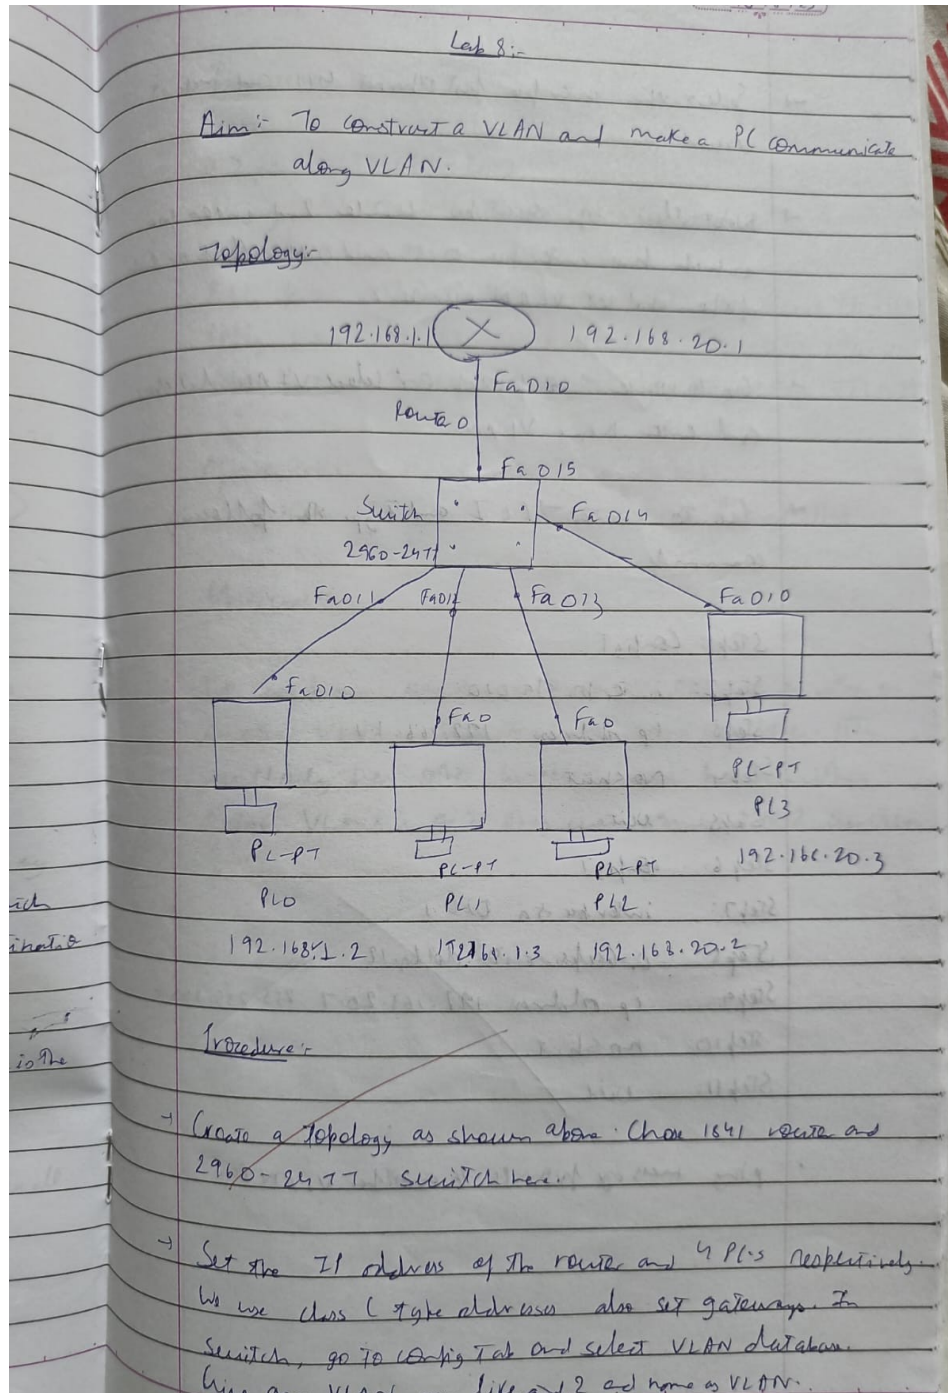 Lab 8:-
Aim:- To construct a VLAN and make a PC communicate
along VLAN.
Topology:-
192.168.1.1
192.168.20.1
Fa0/0
Router 0
Fa0/5
Switch
2960-24TT
Fa0/4
Fa0/1
Fa0/2
Fa0/3
Fa0/0
Fa0/0
Fa0
Fa0
PC-PT
PC3
192.168.20.3
PC-PT
PC-PT
PC-PT
PC0
PC1
PC2
192.168.1.2
192.168.1.3
192.168.20.2
Procedure:-
→ Create a topology as shown above. Chose 1841 router and
2960-24TT switch here.
→ Set the IP address of the router and 4 PC's respectively.
We use class C type addresses also set gateways. In
switch, go to config Tab and select VLAN database.
2 and name as VLAN.
is the